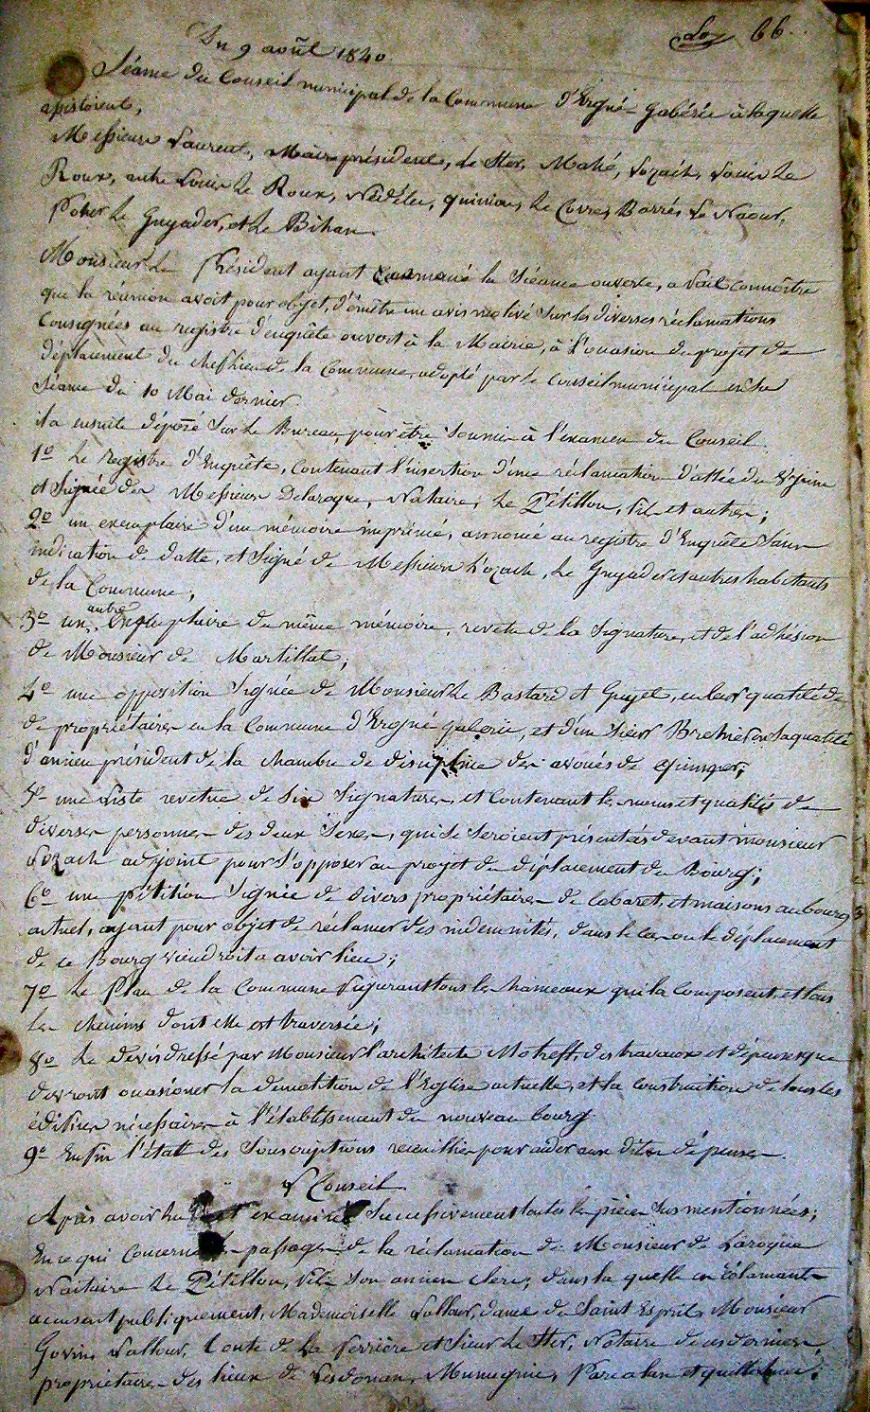 Du 9 août 1840
66.
Séance du Conseil municipal de la Commune d'Ergué-Gabéric à laquelle
assistoient,
Messieurs Laurent, Maire président, Le Her, Mahé, Lozach, Louis Le
Roux, autre Louis Le Roux, Nédélec, Quiniou, Le Corre, Barré, Le Naour,
Poher Le Guyader, et Le Bihan.
Monsieur Le Président ayant la Séance ouverte, a fait connoître
que la réunion avoit pour objet, d'émêtre un avis motivé sur les diverses réclamations
Consignées au registre d'enquête ouvert à la Mairie, à l'ocasion du projet de
déplacement du cheflieu de la Commune, adopté par le Conseil municipal en sa
Séance du 10 Mai dernier.
il a ensuite déposé sur le Bureau, pour être soumis à l'examen du Conseil.
1º Le registre d'Enquête, Contenant l'insertion d'une réclamation dattée du 8 juin
et Signée des Messieurs Delaroque, Notaire, Le Pétillon, fils et autres;
2º un exemplaire d'un mémoire imprimé, annoncé au registre d'Enquête Sans
indication de datte, et Signé de Messieurs Lozach, Le Guyader et autres habitants
de la Commune;
3º un autre Exemplaire du même mémoire, revetu de la Signature, et de l'adhésion
de Monsieur de Martillat;
4º une opposition Signée de Monsieur Le Bastard et Guyet, en leur qualité de
de propriétaires en la Commune d'Ergué gaberic, et d'un Sieur en sa qualité
d'ancien président de la chambre de discipline des avoués de quimper;
5º une Liste revetue de Six Signatures, et Contenant les noms et qualités de
diverses personnes des deux Sexes, qui se seroient présentées devant monsieur
Lozach adjoint pour s'opposer au projet du déplacement du Bourg;
6º une pétition Signée de divers propriétaires de Cabaret, et maisons au bourg
actuel, ayant pour objet de réclamer des indemnités, dans le Cas ou le déplacement
de ce Bourg viendroit a avoir lieu;
7º Le Plan de la Commune figurant tous les hameaux qui la Composent, et tous
les chemins dont elle est traversée;
8º Le devis dressé par Monsieur l'architecte, des travaux et dépenses que
devront ocasioner la démolition de l'Eglise actuelle, et la construction de tous les
édifices nécéssaires à l'établissement du nouveau bourg
9º Enfin l'état des Souscriptions recueillies pour aider aux dites dépenses.
Le Conseil
Après avoir lu et examiné Successivement toutes les pièces sus mentionnées;
En ce qui Concerne les passages de la réclamation de Monsieur de Laroque
Notaire Le Pétillon, fils son ancien clerc, dans la quelle ces réclamants
accusent publiquement, Mademoiselle, dame du Saint Esprit, Monsieur
, Comte de La ferrière et Sieur Le Her, Notaire de ces derniers
propriétaires des lieux de Lesdonan, et